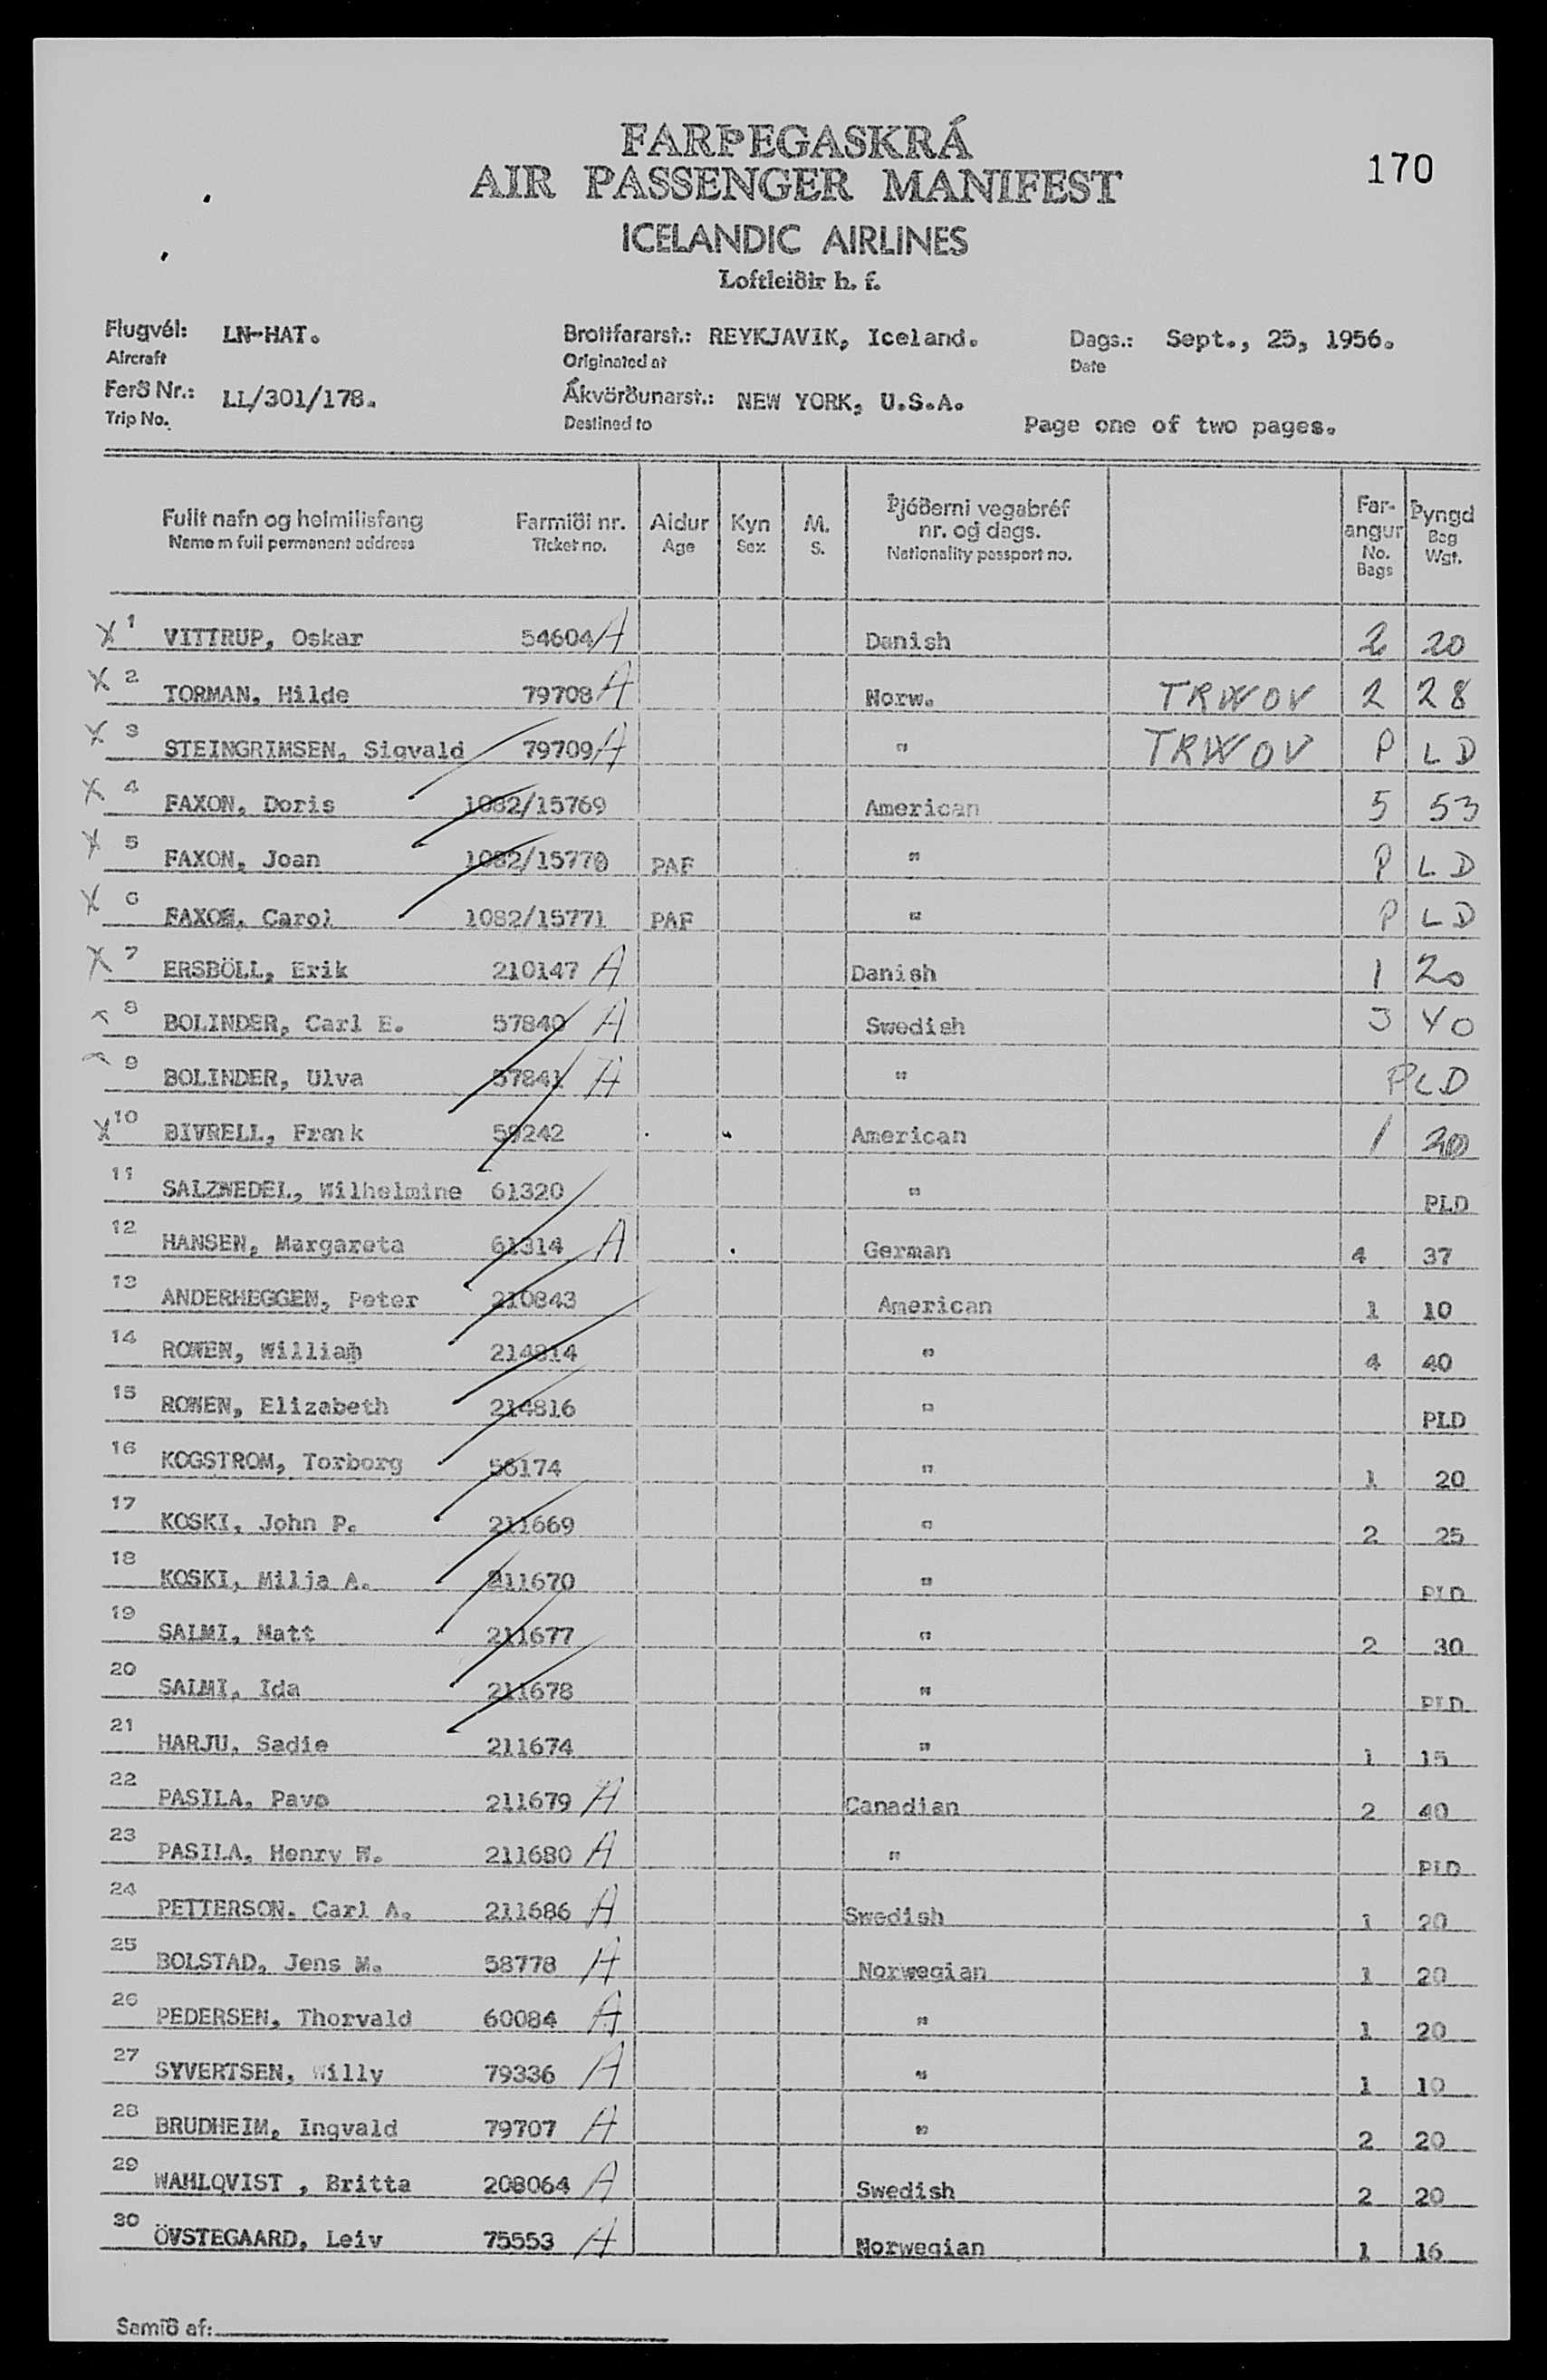 FARÞEGASKRÁ
AIR PASSENGER MANIFEST
170
ICELANDIC AIRLINES
Loftleiðir h. f.
Flugvél: LN-HAT. Brottfararst.: REYKJAVIK, Iceland. Dags.: Sept., 25, 1956.
Aircraft Originated at Date
Ferð Nr.: LL/301/178. Ákvörðunarst.: NEW YORK, U.S.A.
Trip No. Destined to Page one of two pages.
Fullt nafn og heimilisfang Farmiði nr. Aldur Kyn M. Þjóðerni vegabréf nr. og dags. Far-angur Þyngd
Name in full permanent address Ticket no. Age Sex S. Nationality passport no. No. Bags Bag Wgt.
X 1 VITTRUP, Oskar 54604 A Danish 2 20
X 2 TORMAN, Hilde 79708 A Norw. TRWOV 2 28
X 3 STEINGRIMSEN, Sigvald 79709 A " TRWOV P LD
X 4 FAXON, Doris 1082/15769 American 5 53
X 5 FAXON, Joan 1082/15770 PAF " P LD
X 6 FAXON, Carol 1082/15771 PAF " P LD
X 7 ERSBÖLL, Erik 210147 A Danish 1 20
8 BOLINDER, Carl E. 57840 A Swedish 3 40
9 BOLINDER, Ulva 57841 A " PLD
X 10 BIVRELL, Frank 59242 American 1 20
11 SALZWEDEL, Wilhelmine 61320 " PLD
12 HANSEN, Margareta 61314 A German 4 37
13 ANDERHEGGEN, Peter 210843 American 1 10
14 ROWEN, William 214814 " 4 40
15 ROWEN, Elizabeth 214816 " PLD
16 KOGSTROM, Torborg 56174 " 1 20
17 KOSKI, John P. 211669 " 2 25
18 KOSKI, Milja A. 211670 " PLD
19 SALMI, Matt 211677 " 2 30
20 SALMI, Ida 211678 " PLD
21 HARJU, Sadie 211674 " 1 15
22 PASILA, Pavo 211679 A Canadian 2 40
23 PASILA, Henry W. 211680 A " PLD
24 PETTERSON. Carl A. 211686 A Swedish 1 20
25 BOLSTAD, Jens M. 58778 A Norwegian 1 20
26 PEDERSEN, Thorvald 60084 A " 1 20
27 SYVERTSEN, Willy 79336 A " 1 10
28 BRUDHEIM, Ingvald 79707 A " 2 20
29 WAHLQVIST , Britta 208064 A Swedish 2 20
30 ÖVSTEGAARD, Leiv 75553 A Norwegian 1 16
Samið af: